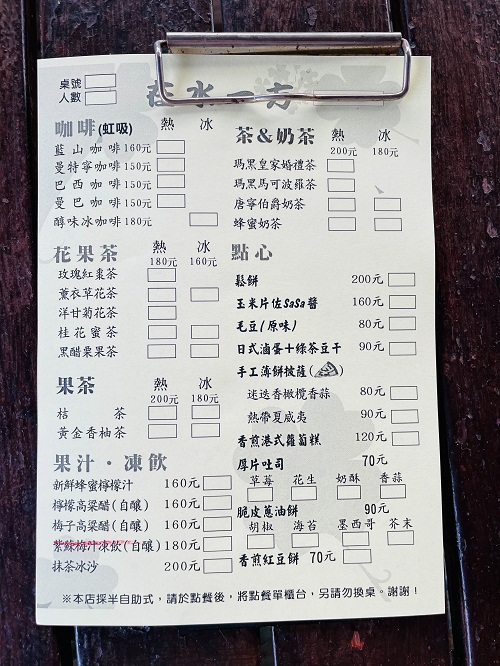 桌號
人數
在水一方
咖啡(虹吸) 熱 冰
藍山咖啡160元
曼特寧咖啡150元
巴西咖啡150元
曼巴咖啡150元
醇味冰咖啡180元
花果茶 熱 冰
180元 160元
玫瑰紅棗茶
薰衣草花茶
洋甘菊花茶
桂花蜜茶
黑醋栗果茶
果茶 熱 冰
200元 180元
桔茶
黃金香柚茶
果汁·凍飲
新鮮蜂蜜檸檬汁 160元
檸檬高粱醋(自釀) 160元
梅子高粱醋(自釀) 160元
紫蘇梅汁凍飲(自釀)180元
抹茶冰沙 200元
茶&奶茶 熱 冰
200元 180元
瑪黑皇家婚禮茶
瑪黑馬可波羅茶
唐寧伯爵奶茶
蜂蜜奶茶
點心
鬆餅 200元
玉米片佐SaSa醬 160元
毛豆(原味) 80元
日式滷蛋+綠茶豆干 90元
手工薄餅披薩( )
迷迭香橄欖香蒜 80元
熱帶夏威夷 90元
香煎港式蘿蔔糕 120元
厚片吐司 70元
草莓 花生 奶酥 香蒜
脆皮蔥油餅 90元
胡椒 海苔 墨西哥 芥末
香煎紅豆餅 70元
※本店採半自助式，請於點餐後，將點餐單櫃台，另請勿換桌。謝謝！